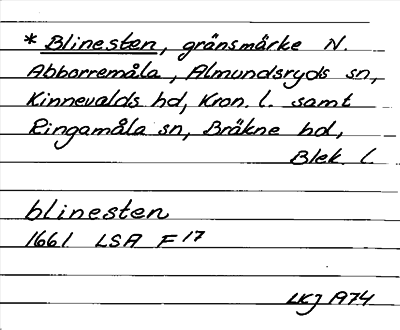 * Blinesten, gränsmärke N.
Abborremåla, Almundsryds sn,
Kinnevalds hd, Kron. l. samt
Ringamåla sn, Bräkne hd,
Blek. l.
blinesten
1661 LSA F 17
LKJ 1974